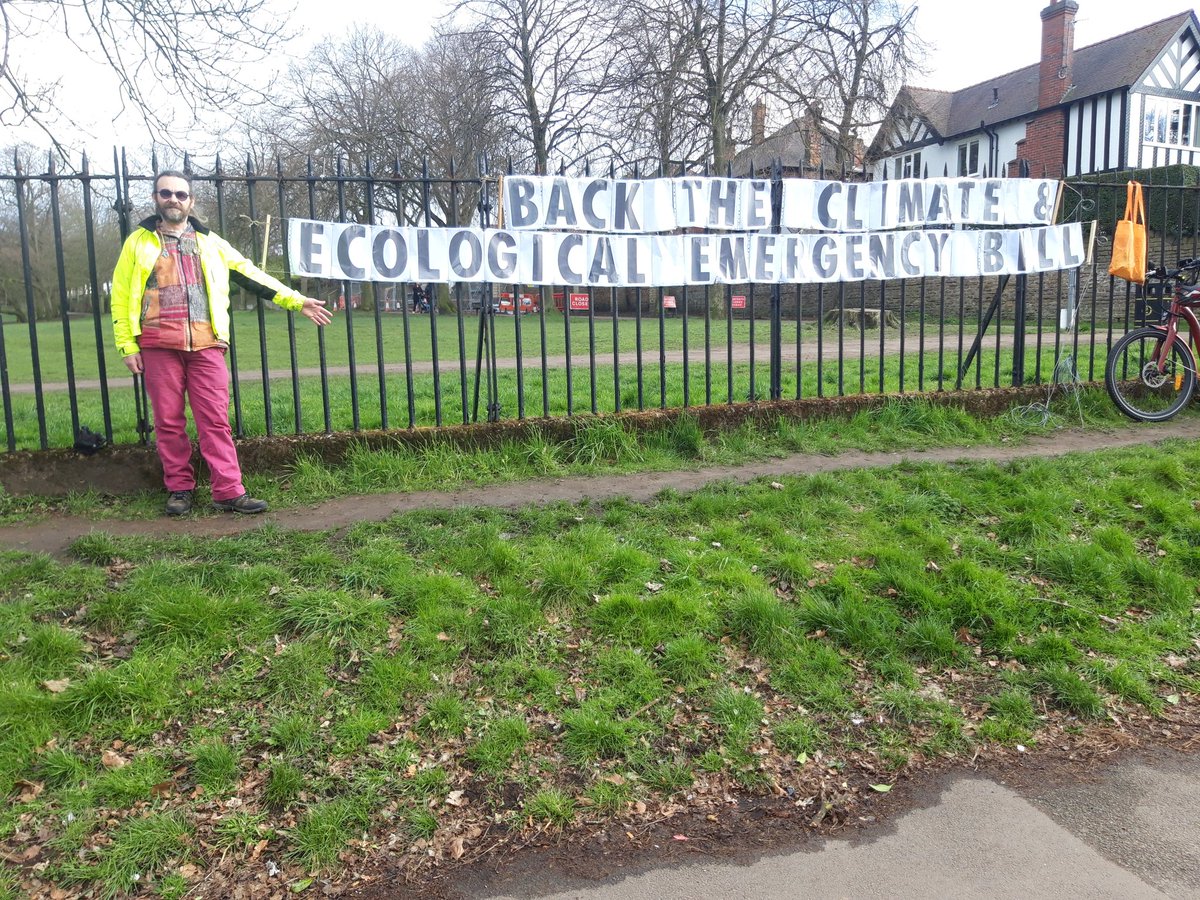 BACK THE CLIMATE &
ECOLOGICAL EMERGENCY BILL
ROAD CLOSED